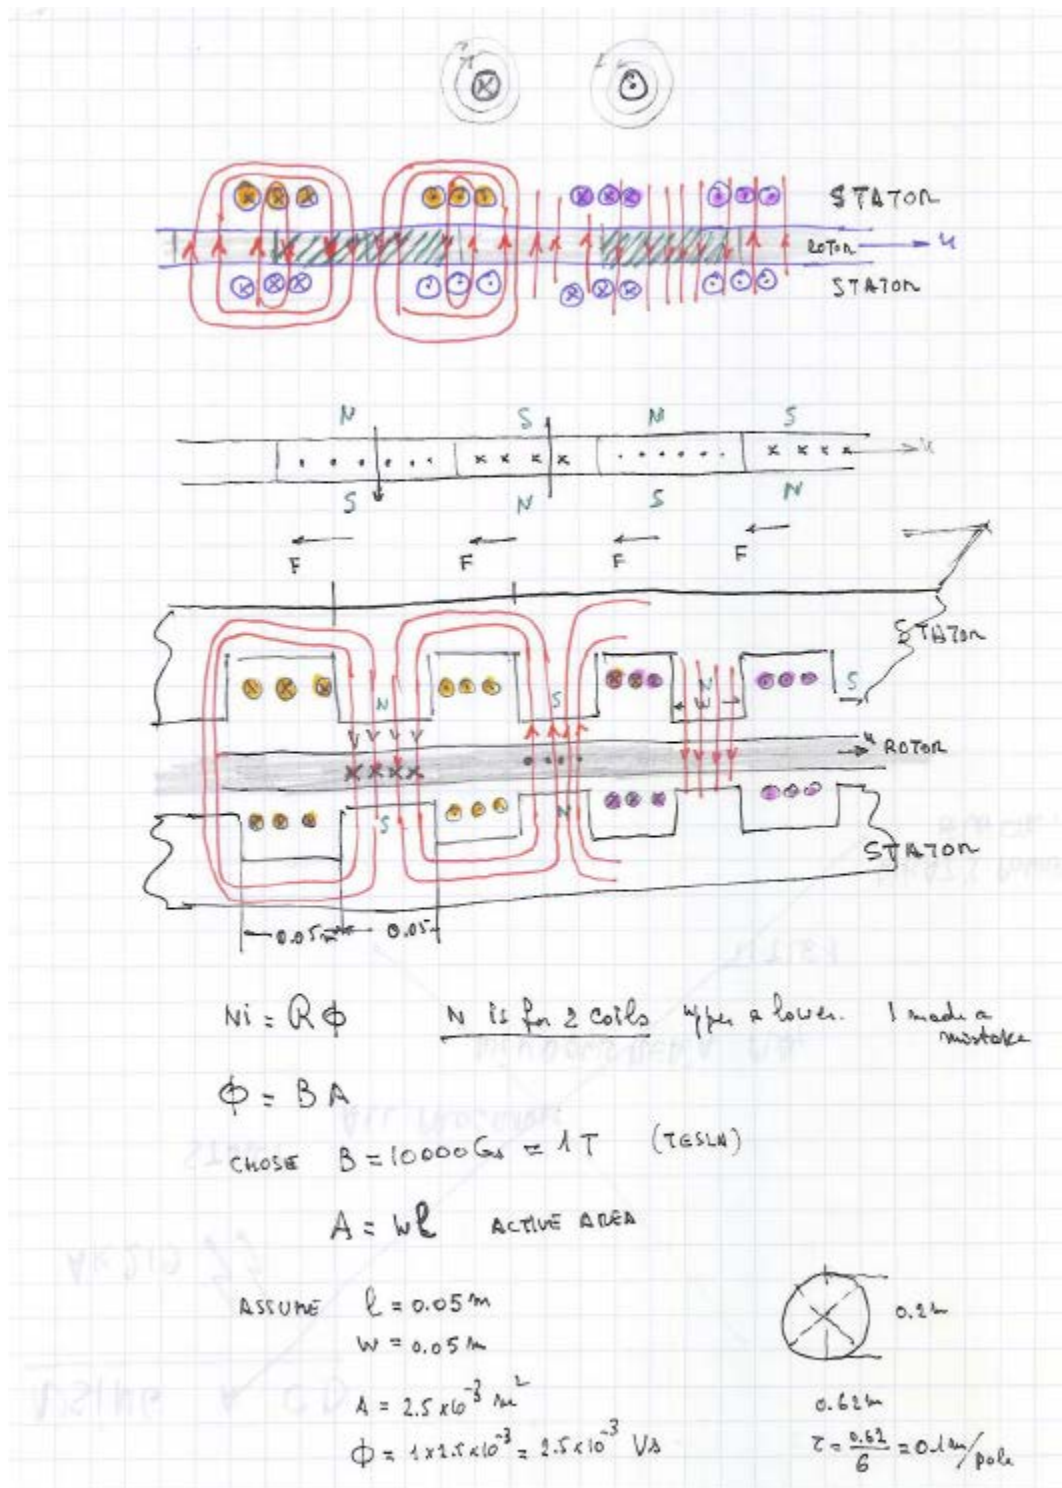 STATOR
ROTOR u
STATOR
N S N S
u
S N S N
F F F F
STATOR
N S N S
W
u ROTOR
S N
STATOR
0.05m 0.05
Ni = R ϕ N is for 2 coils upper & lower. I made a
mistake
ϕ = B A
CHOSE B = 10000 Gs = 1 T (TESLA)
A = wl ACTIVE AREA
ASSUME l = 0.05 m
0.2m
W = 0.05 m
A = 2.5 x10⁻³ m²
0.62m
ϕ = 1x2.5x10⁻³ = 2.5x10⁻³ Vs
τ = 0.62/6 = 0.1m/pole